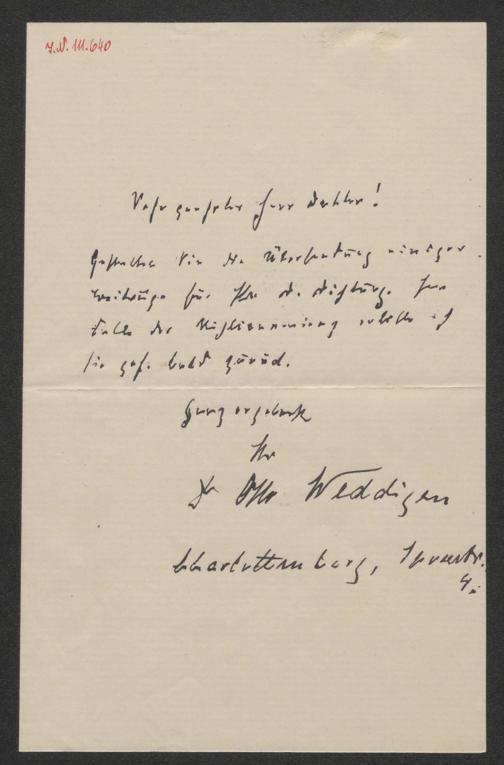 J.N. 111.640
Sehr geehrter Herr Doktor!
Gestatten Sie die Übersendung einiger
Beiträge für Ihre d. Dichtung. Im
Falle der Nichtannahme erbitte ich
sie gef. bald zurück.
Ganz ergebenst
Ihr
Dr Otto Weddigen
Charlottenburg, Spreestr.
4.